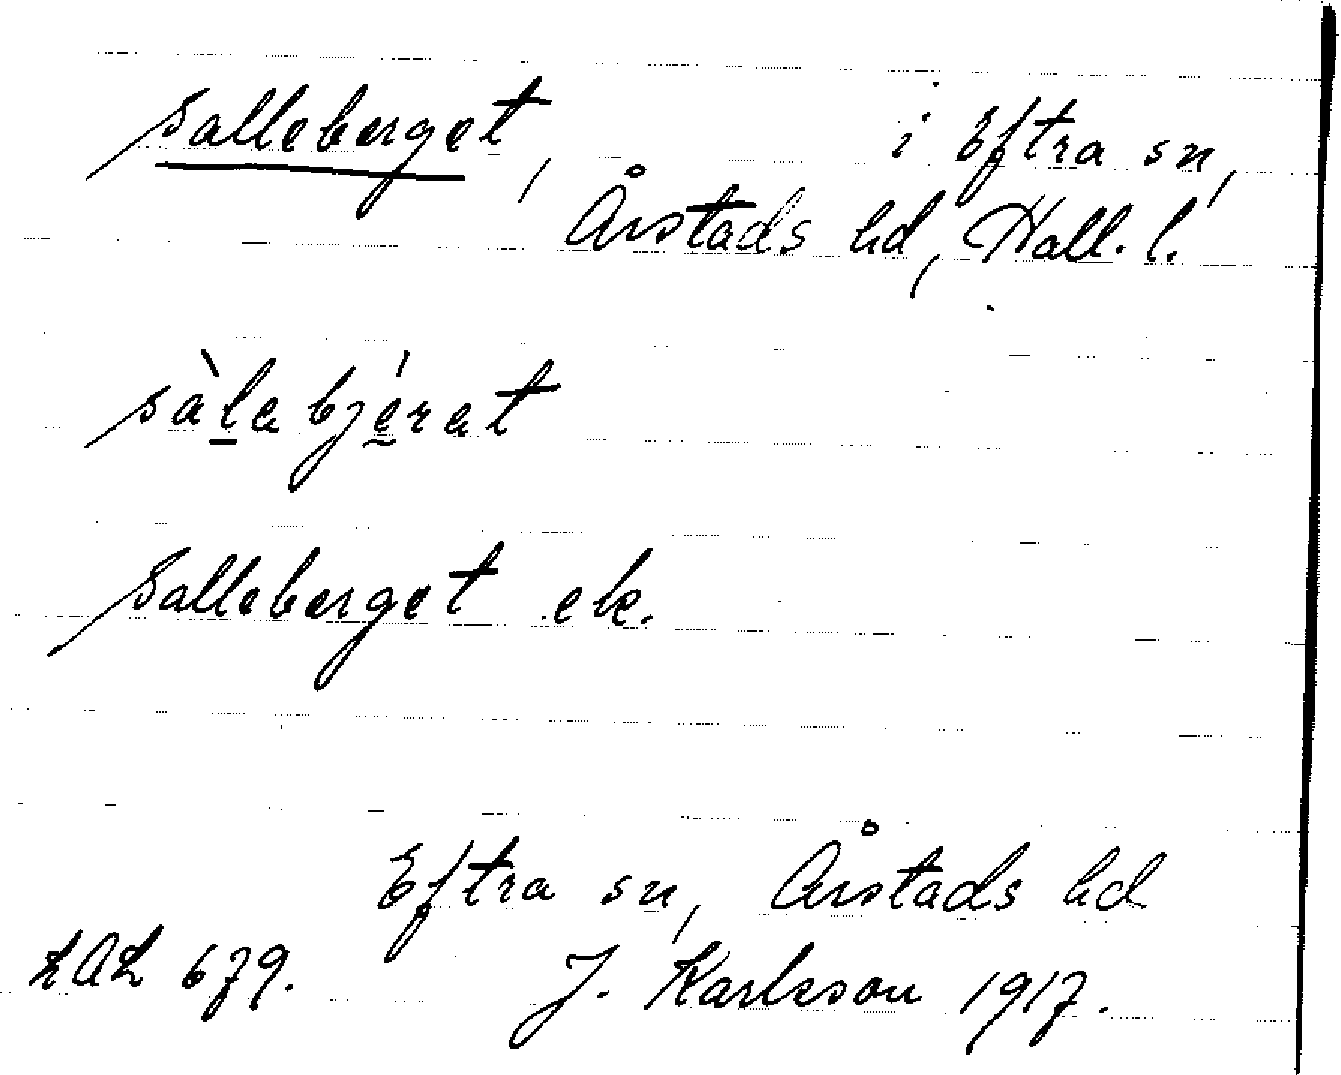 Salleberget, i Eftra sn,
Årstads hd, Hall. l.
sàlabjérat
Salleberget ek.
Eftra sn, Årstads hd
LAL 679. J. Karlsson 1917.